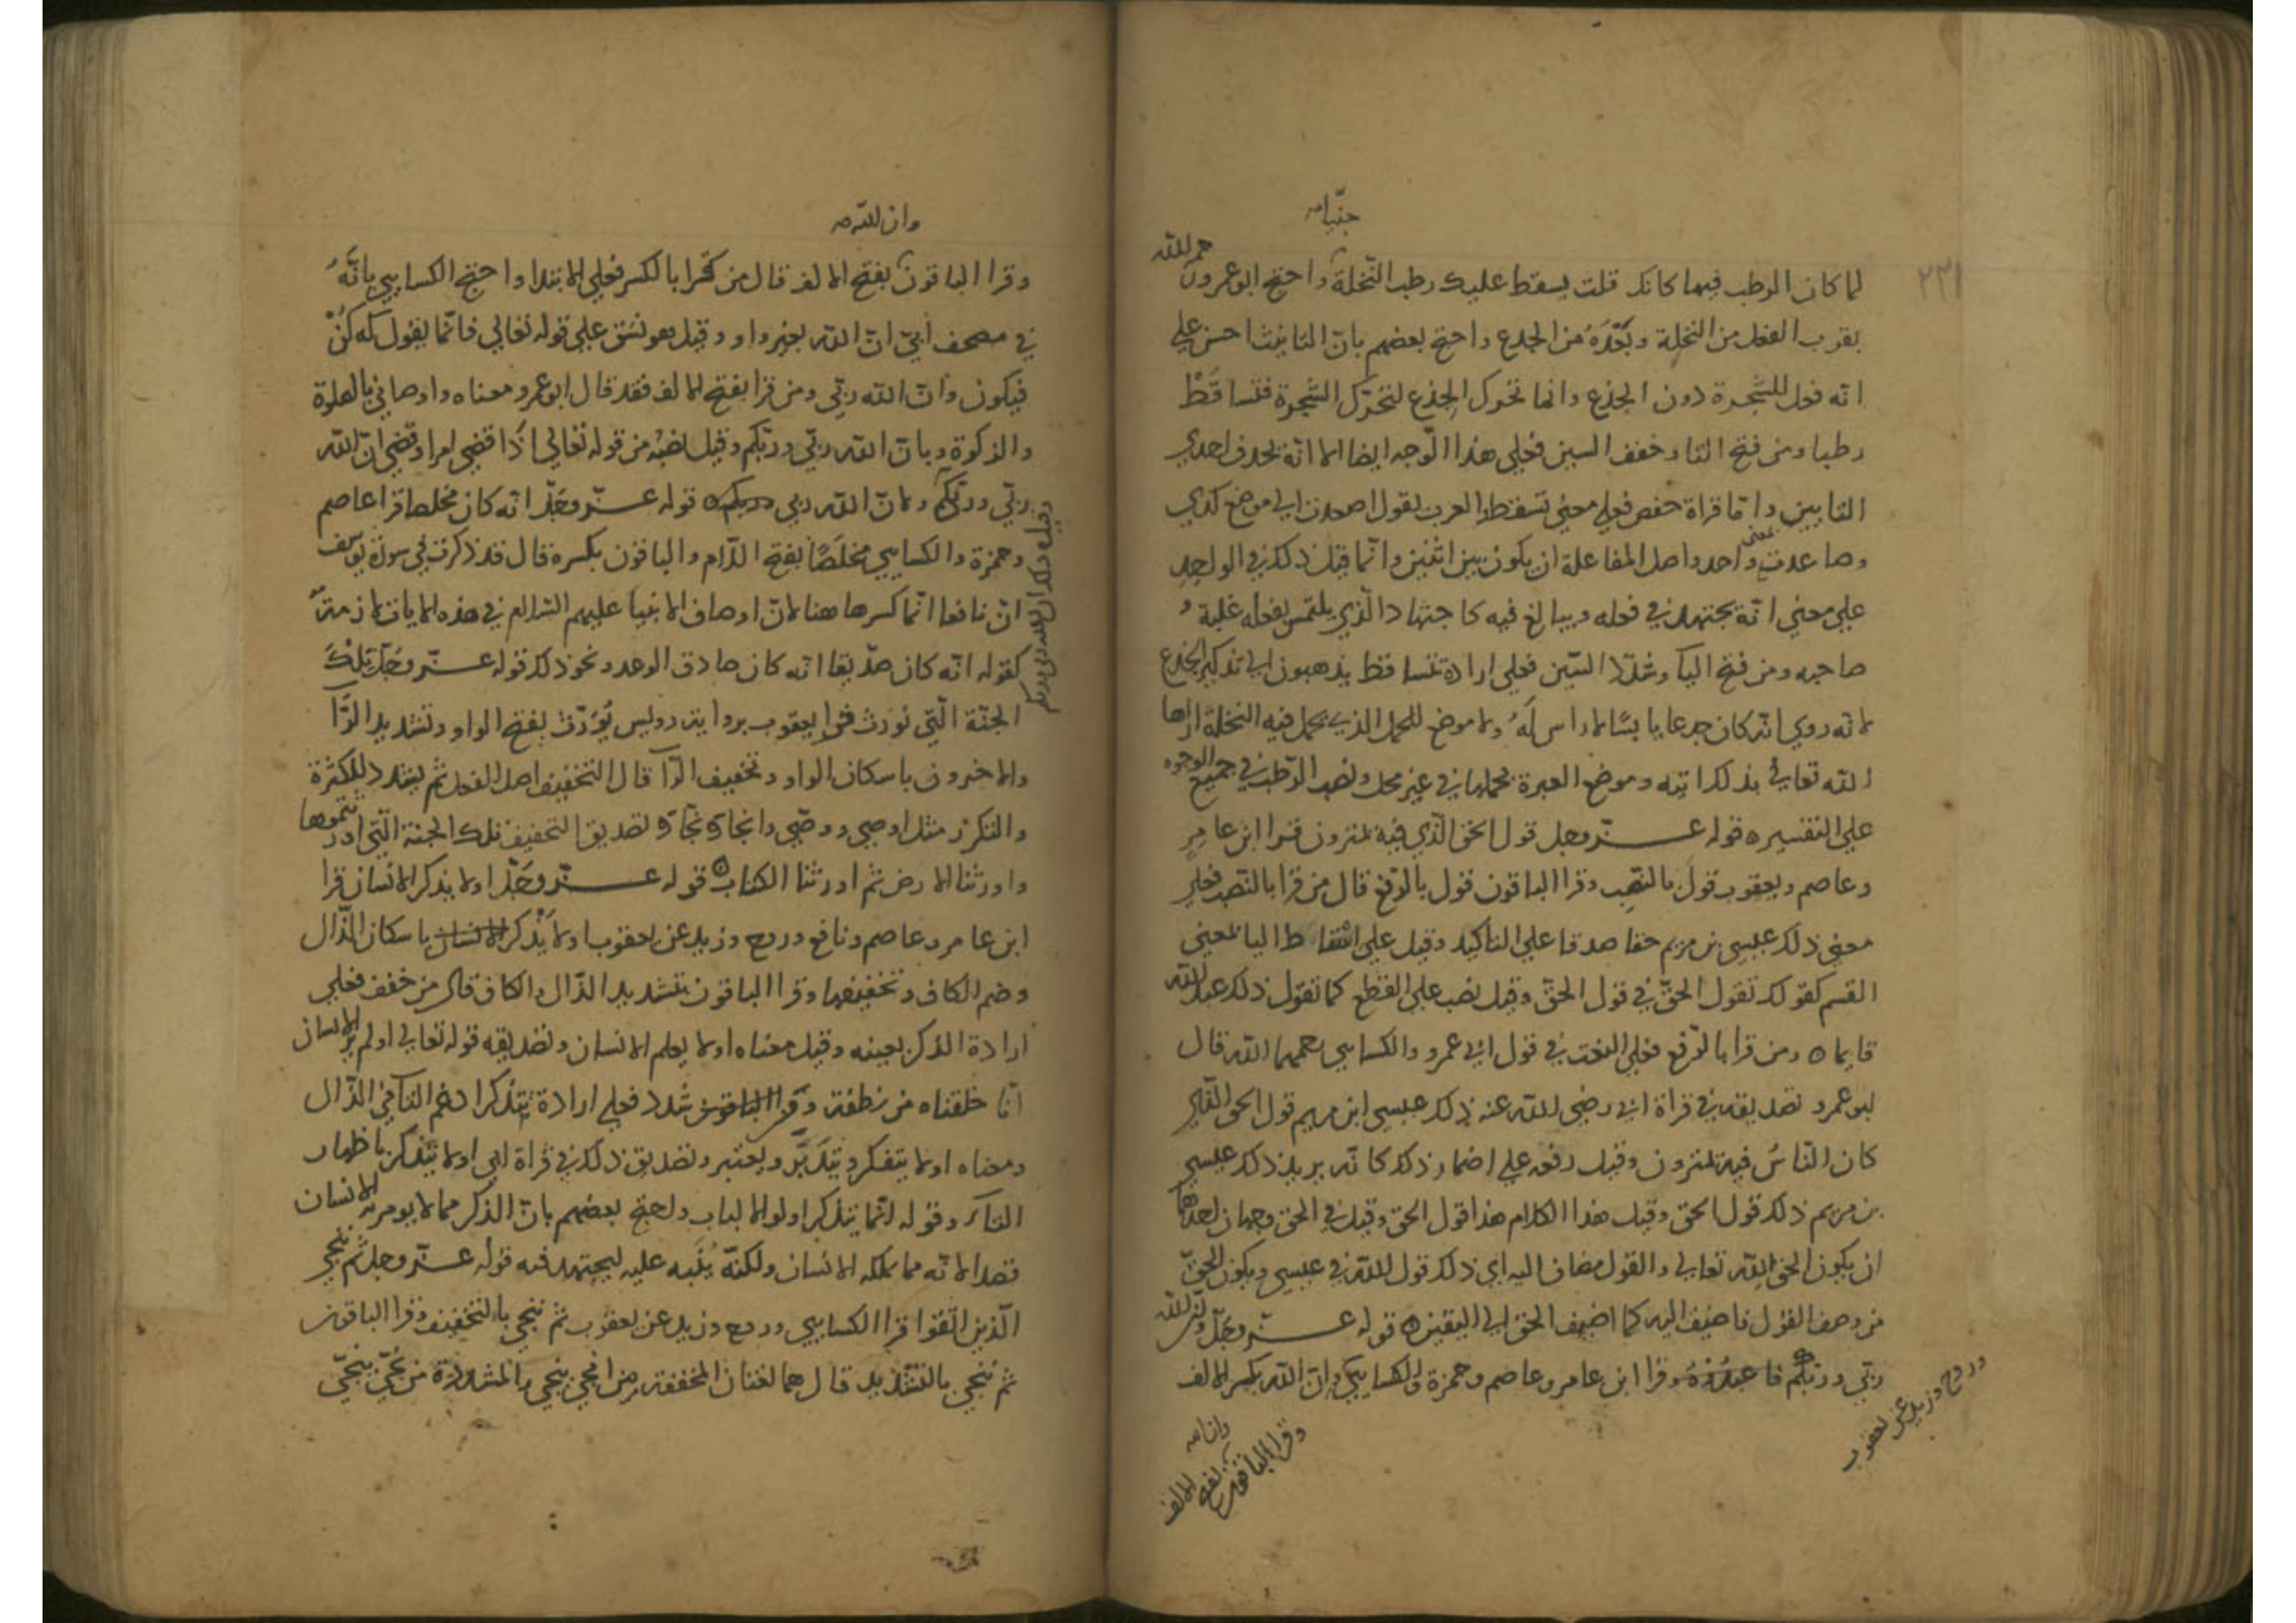 جنّيا
رحمه الله
٢٢١
لما كان الرطب فيها كانك قلت يسقط عليك رطب النّخلة واحتج ابو عمرو
بقرب الفعل من النخلة وبَعّدَهُ من الجذع واحتج بعضهم بان التانيث احسن علي
انه فعل للشجرة دون الجذع وانما تحرك الجذع لتحرّك الشجرة فتساقَطْ
رطبا ومن فتح التا وخفف السين فعلي هذا الوجه ايضا الا انّه يحذف احدي
التايين واما قراة حفص فعلي معني تسقط العرب تقول اصعدت الي موضع كذي
وصاعدت بمعني واحد واصل المفاعلة ان يكون بين اثنين وانّما قيل ذلك في الواحد
علي معني انّه يجتهد في فعله ويبالغ فيه كاجتهاد الّذي يلتمس بفعله غلبة
صاحبه ومن فتح اليآ وشدّد السّين فعلي ارادة تتساقط يذهبون الي تذكير الجذع
لانه روي انّه كان جذعا يابسًا لا راس لهُ ولا موضع للحمل الذي يحمل فيه النخلة اراها
الله تعالي بذلك اية وموضع العبرة بحملها في غير محل ونصب الرّطب في جميع الوجوه
علي التفسير ه قوله عــزّ وجل قول الحق الّذي فيه يمترون قرا ابن عامر
وعاصم ويعقوب قولَ بالنصب وقرا الباقون قول بالرّفع قال من قرا بالنّصب فعلي
معني ذلك عيسي بن مريم حقا صدقا علي التاكيد وقيل علي اسقاط اليا بمعني
القسم كقولك تقول الحقّ في قول الحقّ وقيل نصب علي القطع كما تقول ذلك عبد الله
قايما ه ومن قرا بالرّفع فعلي النعت في قول ابي عمرو والكسايي رحمهما الله قال
ابو عمرو تصديقه في قراة ابي رضي الله عنه ذلك عيسي ابن مريم قول الحق الّذي
كان النّاسُ فيه يمترون وقيل رفعه علي اضمار ذلك كانّه يريد ذلك عيسي
بن مريم ذلك قول الحق وقيل هذا الكلام هذا قول الحق وقيل في الحق وجهان احدهما
ان يكون الحق الله تعالي والقول مضاف اليه اي ذلك قول الله في عيسي ويكون الحقّ
من وصف القول فاضيف اليه كما اضيف الحق الي اليقين ه قوله عــزّ وجلّ وانّ الله
ربّي وربّكم فاعبدوهُ وقرا ابن عامر وعاصم وحمزة والكسايي وانّ الله بكسر الالف
وروح وزيد عن يعقوب
وقرا الباقون وان بفتح الالف
وان الله
وقرا الباقون بفتح الالف قال من قرا بالكسر فعلي الابتدا واحتج الكسايي بانّهُ
في مصحف أبيّ انّ الله بغير واو وقيل هو نسق علي قوله تعالي فانّما يقول له كُنْ
فيكون وانّ الله ربّي ومن قرا بفتح الالف فقد قال ابو عمرو معناه واوصاني بالصلوة
والزكوة وبانّ الله ربّي وربّكم وقيل نصبُه من قوله تعالي اذا قضي امرا وقضي انّ الله
ربّي وربّكم ولانّ الله ربي وربكم ه قوله عــزّ وجَلّ انّه كان مخلصا قرا عاصم
وحمزة والكسايي مخلَصًا بفتح اللّام والباقون بكسره قال قد ذكرت في سورة يوسف
انّ نافعا انّما كسرها هنا لانّ اوصاف الانبيا عليهم السّلام في هذه الايات لازمة
كقوله انّه كان صدّيقا انّه كان صادق الوعد ونحو ذلك قوله عــزّ وجَلّ تِلْكَ
الجنّة الّتي نورث قرا يعقوب برواية رويس نُوَرّث بفتح الواو وتشديد الرّآ
والاخرون باسكان الواو وتخفيف الرّآ قال التخفيف اصل الفعل ثم يشدد للكثرة
والتكرر مثل اوصي ووصّي وانجاهُ ونجّاهُ وتصديق التخفيف تلك الجنة الّتي اورثتموها
واورثنا الارض ثم اورثنا الكتاب ه قوله عــزّ وجَلّ اولا يذكر الانسان قرا
ابن عامر وعاصم ونافع وروح وزيد عن يعقوب اولا يَذْكر الانسان باسكان الذّال
وضم الكاف وتخفيفها وقرا الباقون بتشديد الذّال والكاف قال من خفف فعلي
ارادة الذكر بعينه وقيل معناه اولا يعلم الانسان وتصديقه قوله تعالي اولم ير الانسان
انّا خلقناه من نطفة وقرا الباقون شدد فعلي ارادة يتذكر ادغم التآ في الذّال
ومعناه اولا يتفكر ويتدبّر ويعتبر وتصديق ذلك في قراة ابي اولا يتذكر باظهار
التآ وقوله انّما يتذكر اولوا الالباب واحتج بعضهم بانّ الذكر مما لا يومر به الانسان
قصدا لانّه مما يملكه الانسان ولكنّه يُنَبه عليه ليجتهد فيه قوله عــزّ وجل ثم ننجي
الّذين اتّقوا قرا الكسايي وروح وزيد عن يعقوب ثم ننجي بالتخفيف وقرا الباقون
ثم نُنجّي بالتشديد قال هما لغتان المخففة من انجي ينجي والمشددة من نجّي ينجّي